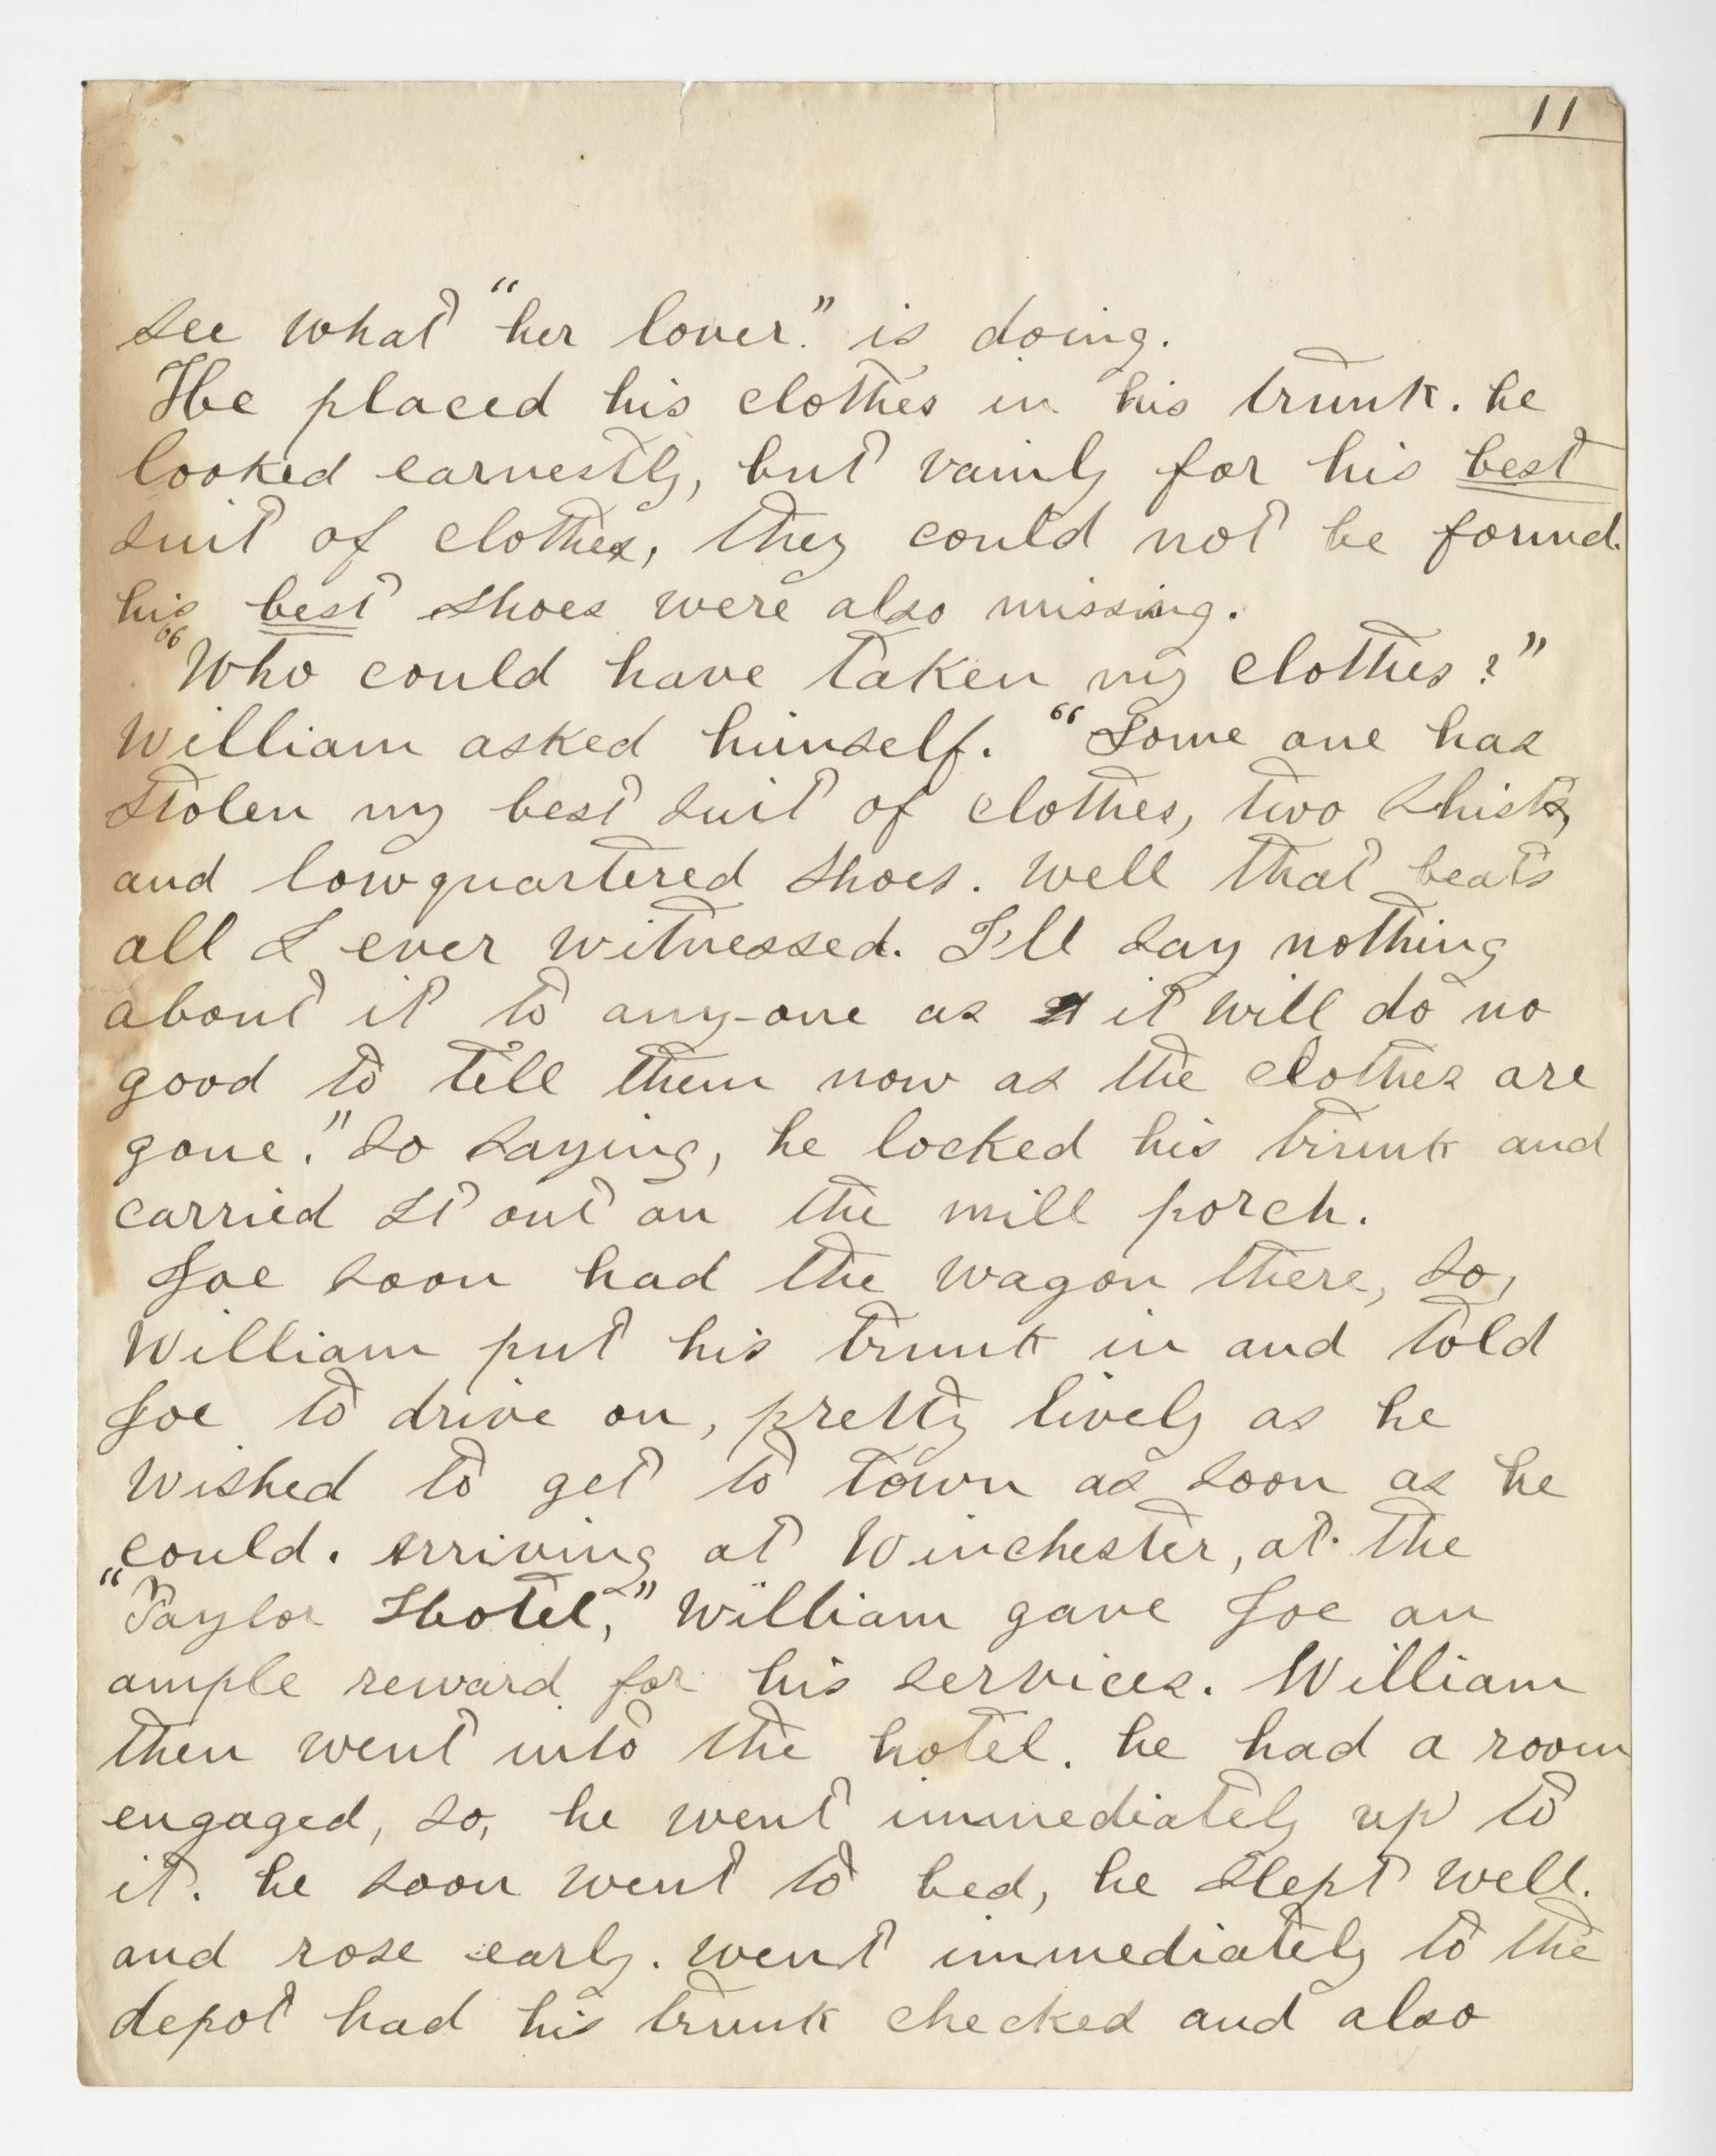 11
see what "her lover." is doing.
He placed his clothes in his trunk. he
looked earnestly, but vainly for his best
suit of clothes, they could not be found.
his best shoes were also missing.
"Who could have taken my clothes?"
William asked himself. "Some one has
stolen my best suit of clothes, two shirts,
and lowquartered shoes. well that beats
all I ever witnessed. I'll say nothing
about it to any-one as it will do no
good to tell them now as the clothes are
gone." so saying, he locked his trunk and
carried it out on the mill porch.
Joe soon had the wagon there, so,
William put his trunk in and told
Joe to drive on, pretty lively as he
wished to get to town as soon as he
could. arriving at Winchester, at the
"Taylor Hotel," William gave Joe an
ample reward for his services. William
then went into the hotel. he had a room
engaged, so, he went immediately up to
it. he soon went to bed, he slept well.
and rose early. went immediately to the
depot had his trunk checked and also